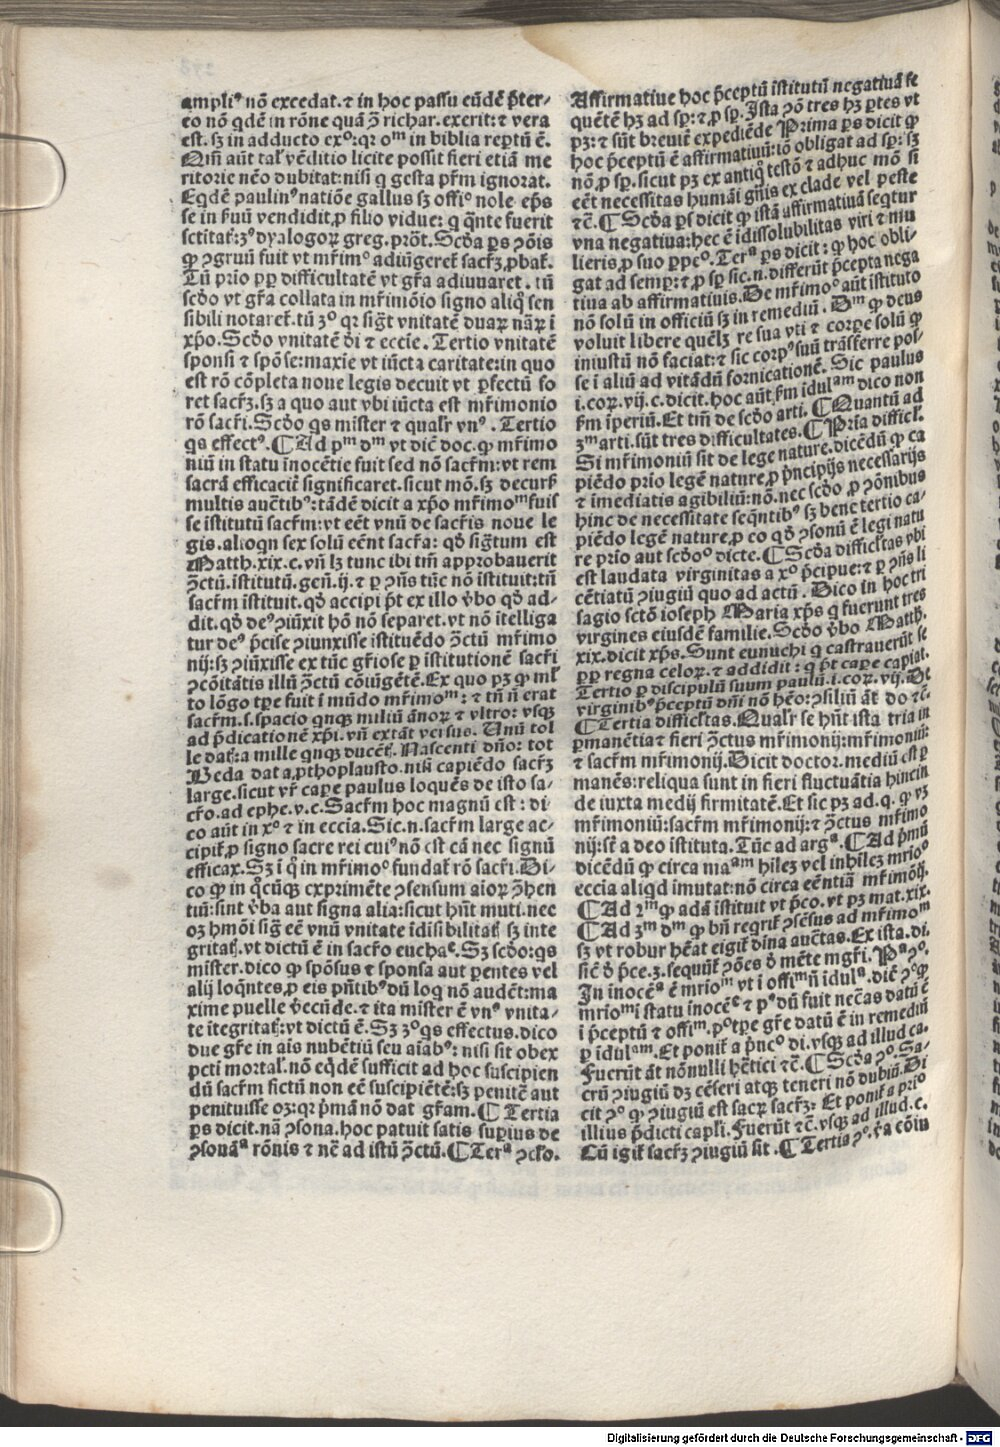 ampliꝰ nō excedat.⁊ in hoc passu eūdē p̄ter⸗
eo nō qdē in rōne quā ꝯ̄ richar.exerit:⁊ vera
est.sꝫ in adducto exº:qr oᵐ in biblia reptū ē.
Qm̄ aūt tal' vēditio licite possit fieri etiā me
ritorie nēo dubitat:nisi q gesta pr̄m ignorat.
Eqdē paulinꝰ natiōe gallus sꝫ offiº nole ep̄s
se in ẜuū vendidit,p filio vidue: q q̄nte fuerit
sctitat:3º dyalogoꝝ greg.prōt.Scd̄a ps ꝯōis
ꝙ ꝯgruū fuit vt mr̄imº adiūgeret̃ sacr̄ꝫ,pbat̃.
Tū prio ꝓp difficultatē vt gr̄a adiuuaret.tū
scd̄o vt gr̄a collata in mr̄imōio signo aliq̊ sen
sibili notaret̃.tū 3º qr sigt̃ vnitatē duaꝝ nāꝝ i
xp̄o.Scd̄o vnitatē d̄i ⁊ eccie.Tertio vnitatē
sponsi ⁊ spōse:maxie vt iūcta caritate:in quo
est rō cōpleta noue legis decuit vt ꝑfectū fo
ret sacr̄ꝫ.sꝫ a quo aut vbi iūcta est mr̄imonio
rō sacr̄i.Scd̄o qs mister ⁊ qualr̃ vnꝰ.Tertio
qs effectꝰ.¶Ad pᵐ dᵐ vt dic̄ doc.ꝙ mr̄imo
niū in statu inocētie fuit sed nō sacr̄m:vt rem
sacrā efficacit̃ significaret.sicut mō.sꝫ decurẜ
multis auc̄tibꝰ:tādē dicit a xp̄o mr̄imoᵐ fuis
se istitutū sacr̄m:vt eēt vnū de sacr̄is noue le
gis.alioqn sex solū eēnt sacr̄a: qd̄ sigt̃um est
Matth.xix.c.vn̄ lꝫ tunc ibi tm̄ approbauerit
ꝯ̄ctū.istitutū.gen̄.ij.⁊ ꝑ ꝯn̄s tūc nō istituit:tn̄
sacr̄m istituit.qd̄ accipi p̄t ex illo v̄bo qd̄ ad⸗
dit.qd̄ deꝰ ꝯiūxit hō nō separet.vt nō itelliga
tur deꝰ p̄cise ꝯiunxisse istituēdo ꝯ̄ctū mr̄imo
nij:sꝫ ꝯiūxisse ex tūc gr̄iose ꝑ istitutionē sacr̄i
ꝯcōitātis illū ꝯ̄ctū cōiūgētē.Ex quo pꝫ ꝙ ml̄
to lōgo tꝑe fuit i mūdo mr̄imoᵐ:⁊ tn̄ n̄ erat
sacr̄m.s.spacio qnqꝫ miliū ānoꝝ ⁊ vltro: vsqꝫ
ad p̄dicationē xp̄i.vn̄ extāt versus.Unū tol
le dat̃:a mille qnqꝫ ducēt̃.Nascenti dn̄o: tot
Beda dat a,pthoplausto.nisi capiēdo sacr̄ꝫ
large.sicut vr̄ caꝑe paulus loquēs de isto sa⸗
cr̄o.ad ephe.v.c.Sacr̄m hoc magnū est: di⸗
co aūt in xº ⁊ in eccia.Sic.n.sacr̄m large ac⸗
cipit̃,p signo sacre rei cuiꝰ nō est cā nec signū
efficax.Sꝫ i q̊ in mr̄imoº fundat̃ rō sacr̄i.Di⸗
co ꝙ in q̊cūqꝫ exprimēte ꝯsensum aioꝝ ꝯ̄hen
tiū:sint v̄ba aut signa alia:sicut hn̄t muti.nec
oꝫ hmōi sig̃ eē vnū vnitate idisibilitat̃ sꝫ inte
gritat̃.vt dictū ē in sacr̄o euchaᵉ.Sꝫ scd̄o:qs
mister.dico ꝙ spōsus ⁊ sponsa aut pentes vel
alij loqn̄tes,p eis pn̄tibꝰ dū loq nō audēt:ma
xime puelle v̄ecūde.⁊ ita mister ē vnꝰ vnita⸗
te itegritat̃:vt dictū ē.Sꝫ 3º qs effectus.dico
due gr̄e in ais nubētiū seu aiabꝰ: nisi sit obex
pcti mortal̃.nō eq̄dē sufficit ad hoc suscipien
dū sacr̄m fictū non eē suscipiētē:sꝫ penitē aut
penituisse oꝫ:qr p̄mā nō dat gr̄am.¶Tertia
ps dicit.nā ꝯsona.hoc patuit satis supius de
ꝯsonāᵃ rōnis ⁊ nē ad istū ꝯ̄ctū.¶Terᵃ ꝯclo.
Affirmatiue hoc p̄ceptū istitutū negatiuā se
quētē hꝫ ad sꝑ:⁊,p sꝑ.Ista ꝯō tres hꝫ ptes vt
pꝫ:⁊ sūt breuit̃ expediēde Prima ps dicit ꝙ
hoc p̄ceptū ē affirmatiuū:iō obligat ad sꝑ: sꝫ
nō,p sꝑ.sicut pꝫ ex antiq̊ testō ⁊ adhuc mō si
eēt necessitas humāi gn̄is ex clade vel peste
⁊c̄.¶Scd̄a ps dicit ꝙ istā affirmatiuā seqtur
vna negatiua:hec ē idissolubilitas viri ⁊ mu
lieris,p suo ꝑpeº.Terᵃ ps dicit: ꝙ hoc obli⸗
gat ad semꝑ:⁊,p sꝑ sic.n.differūt p̄cepta nega
tiua ab affirmatiuis.De mr̄imoº aūt istituto
nō solū in officiū sꝫ in remediū.Dᵐ ꝙ deus
voluit libere quēlꝫ re sua vti ⁊ corꝑe solū ꝙ
iniustū nō faciat:⁊ sic corpꝰ suū trāsferre pos⸗
se i aliū ad vitādū fornicationē.Sic paulus
i.coꝝ.vij.c.dicit.hoc aūt ẜm idulᵃᵐ dico non
ẜm iperiū.Et tm̄ de scd̄o arti.¶Quantū ad
3ᵐ arti.sūt tres difficultates.¶Pria difficl̃.
Si mr̄imoniū sit de lege nature.dicēdū ꝙ ca
piēdo prio legē nature,p p̄ncipijs necessarijs
⁊ imediatis agibiliū:nō.nec scd̄o,p ꝯōnibus
hinc de necessitate seqn̄tibꝰ sꝫ bene tertio ca⸗
piēdo legē nature,p eo qd̄ ꝯsonū ē legi natu
re prio aut scd̄oº dicte.¶Scd̄a difficl̃tas vbi
est laudata virginitas a xº p̄cipue:⁊ ꝑ ꝯn̄s li
cētiatū ꝯiugiū quo ad actū.Dico in hoc tri
sagio sctō ioseph Maria xp̄s q fuerunt tres
virgines eiusdē familie.Scd̄o v̄bo Matth.
xix.dicit xp̄s.Sunt eunuchi q castrauerūt se
ꝓp regna celoꝝ.⁊ addidit: q p̄t caꝑe capiat.
Tertio ꝑ discipulū suum paulū.i.coꝝ.vij.De
virginibꝰ p̄ceptū dn̄i nō hēo:ꝯsiliū āt do ⁊c̄.
¶Tertia difficl̃tas.Qualr̃ se hn̄t ista tria in
ꝑmanētia⁊ fieri ꝯ̄ctus mr̄imonij:mr̄imoniū:
⁊ sacr̄m mr̄imonij.Dicit doctor.mediū est ꝑ
manēs:reliqua sunt in fieri fluctuātia hincin
de iuxta medij firmitatē.Et sic pꝫ ad.q.ꝙ vꝫ
mr̄imoniū:sacr̄m mr̄imonij:⁊ ꝯ̄ctus mr̄imo
nij:sr̄t a deo istituta.Tūc ad argᵃ.¶Ad p̄mū
dicēdū ꝙ circa maᵃᵐ hilez vel inhilez mrioº
eccia aliqd imutat:nō circa eēntiā mr̄imōij.
¶Ad 2ᵐ ꝙ adā istituit vt p̄co.vt pꝫ mat.xix.
¶Ad 3ᵐ dᵐ ꝙ bn̄ reqrit̃ ꝯsēsus ad mr̄imoᵐ
sꝫ vt robur hēat eigit̃ dina auc̄tas.Ex ista.di.
sic̄ d̄ p̄ce.3.sequūt̃ ꝯōes d̄ mēte mgr̄i.Pᵃ ꝯº.
In inocēᵃ ē mrioᵐ vt i offiᵐ n̄ idulᵃ.dic̄ ꝯº ꝙ
mrioᵐ i statu inocēᵉ ⁊ pꝰ dū fuit nec̄as datū ē
i p̄ceptū ⁊ offiᵐ.pº tꝑe gr̄e datū ē in remediū
ꝑ idulᵃᵐ.Et ponit̃ a p̄ncº di.vsqꝫ ad illud ca.
Fuerūt āt nōnulli hētici ⁊c̄.¶Scd̄a ꝯº.Sa⸗
crū ꝯiugiū dꝫ cēseri atqꝫ teneri nō dubiū.Di
cit ꝯº ꝙ ꝯiugiū est sacꝝ sacr̄ꝫ: Et ponit̃ a prio
illius p̄dicti capli.Fuerūt ⁊c̄.vsqꝫ ad illud.c.
Cū igit̃ sacr̄ꝫ ꝯiugiū sit.¶Tertia ꝯº.v̄a cōiu
Digitalisierung gefördert durch die Deutsche Forschungsgemeinschaft - DFG